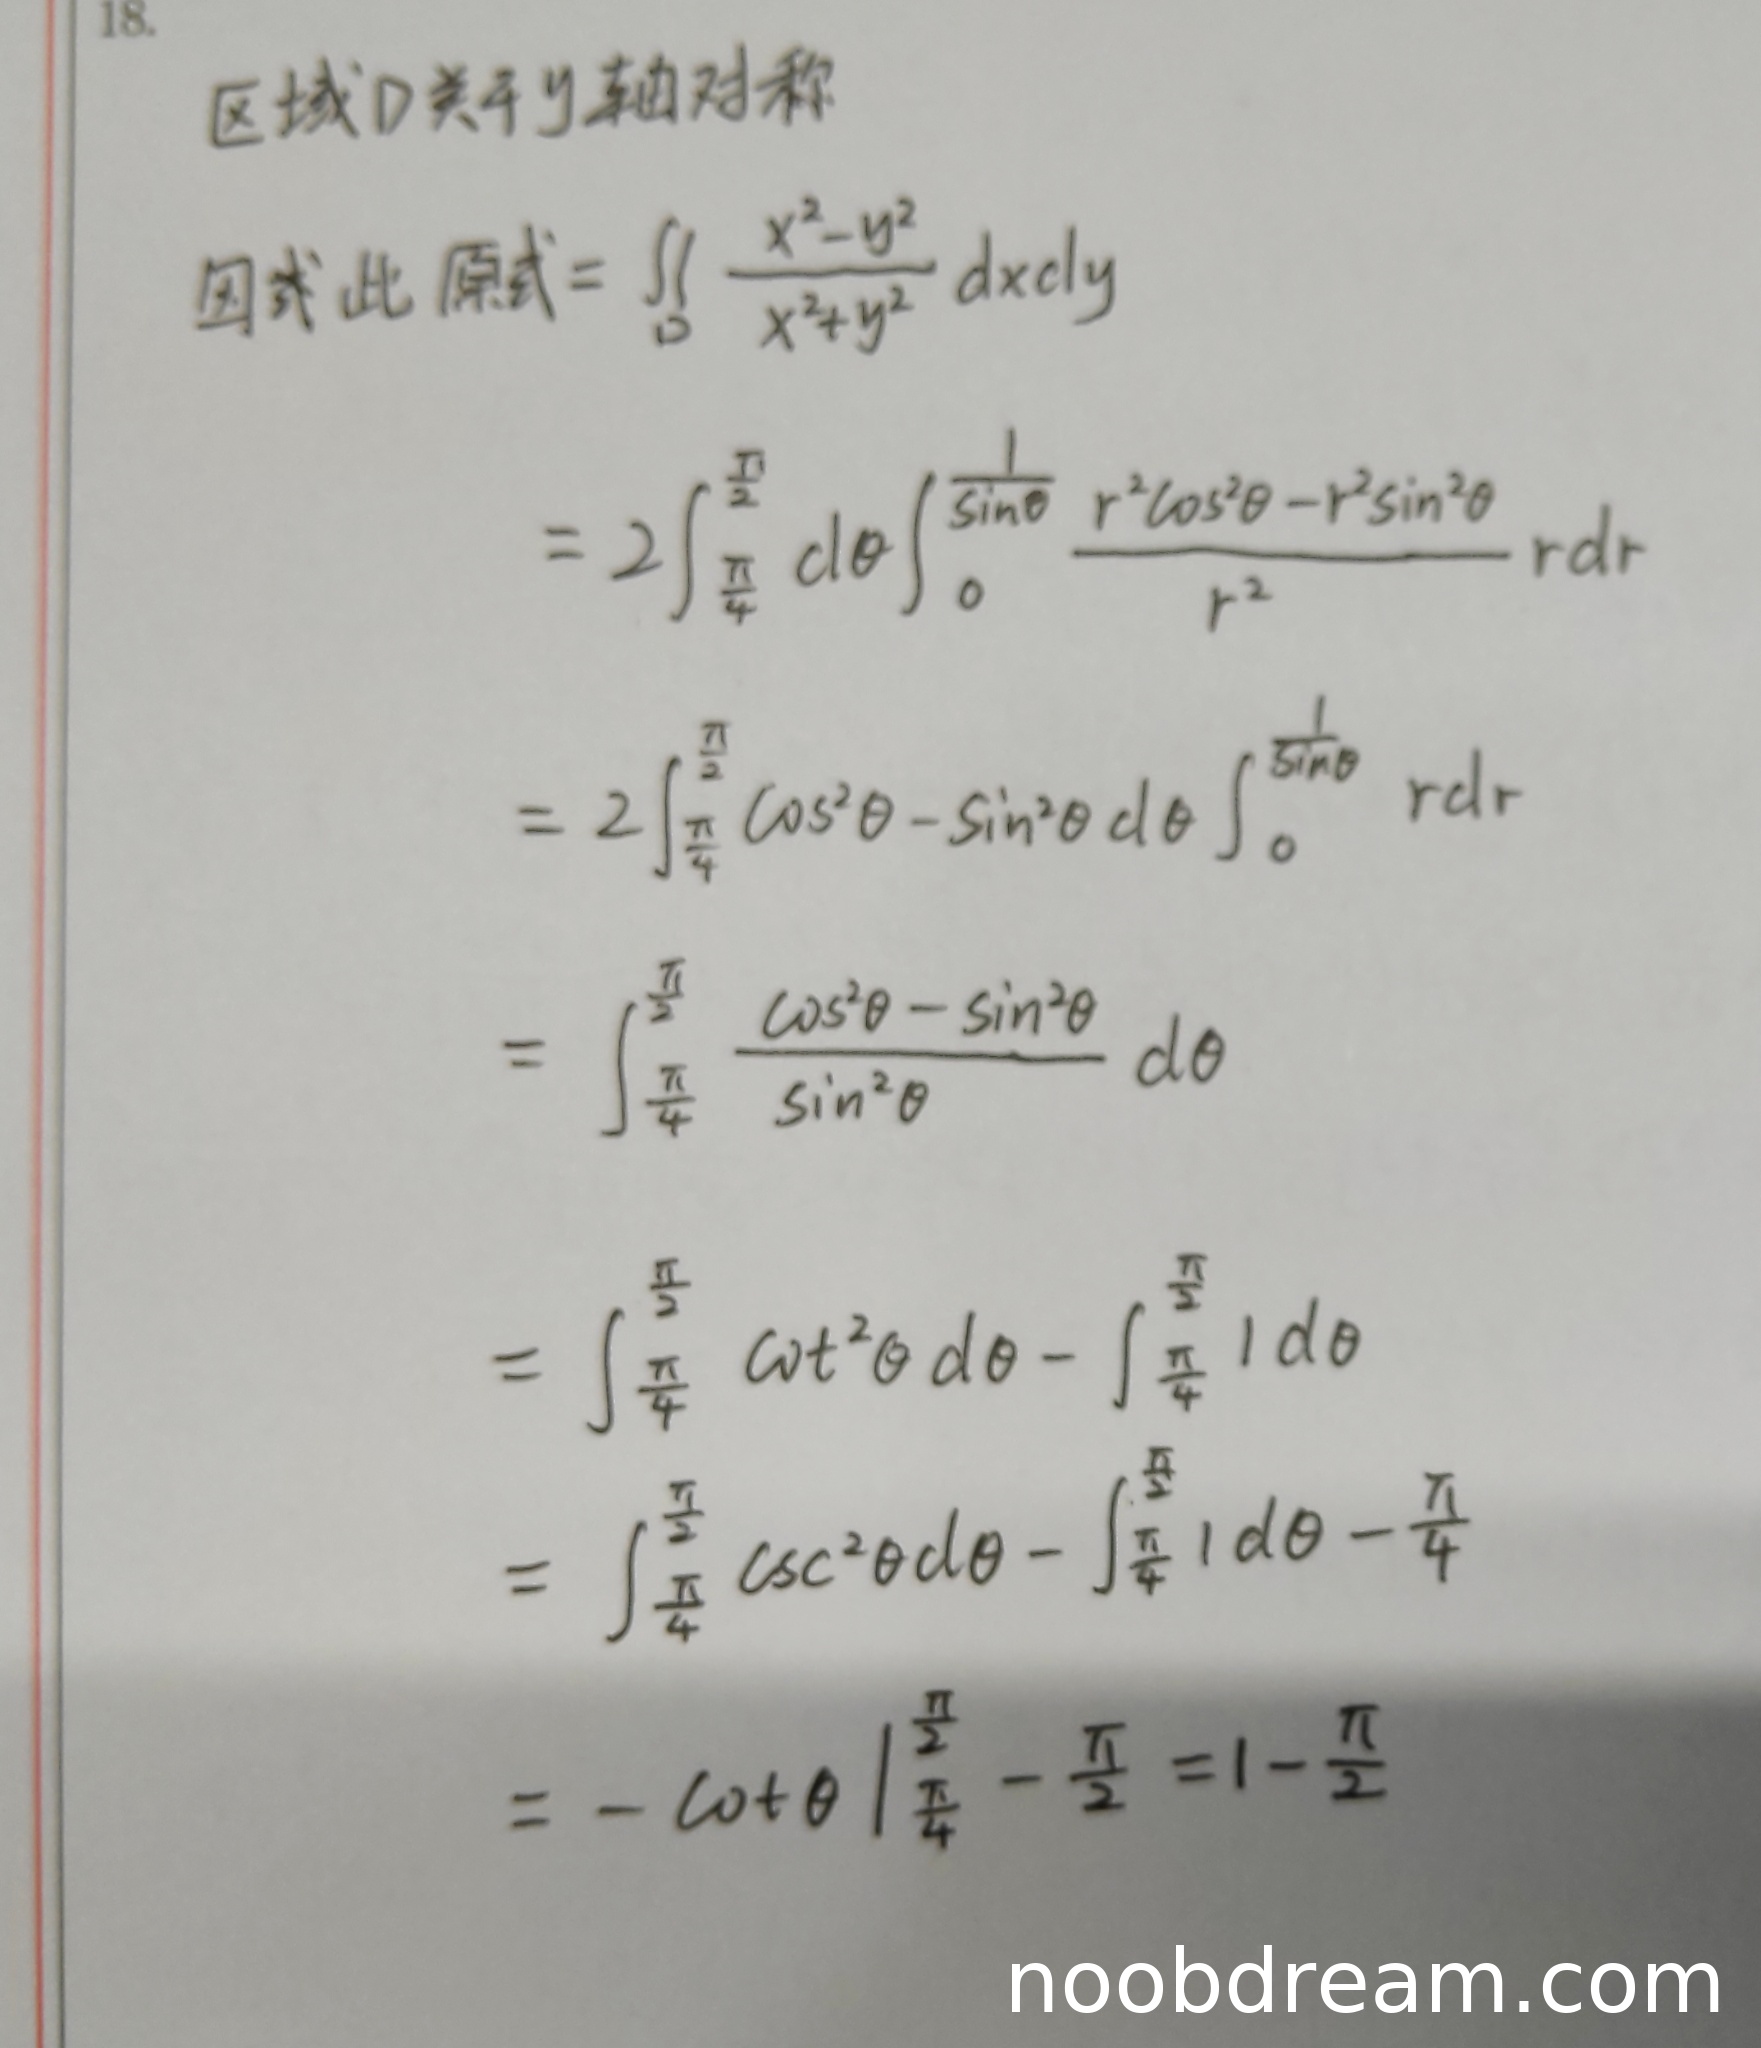 18.
区域D关于y轴对称
因式此原式 = ∬_D (x²-y²)/(x²+y²) dxdy
= 2∫_{π/4}^{π/2} dθ ∫_0^{1/sinθ} (r²cos²θ - r²sin²θ)/r² rdr
= 2∫_{π/4}^{π/2} cos²θ - sin²θ dθ ∫_0^{1/sinθ} rdr
= ∫_{π/4}^{π/2} (cos²θ - sin²θ)/sin²θ dθ
= ∫_{π/4}^{π/2} cot²θ dθ - ∫_{π/4}^{π/2} 1 dθ
= ∫_{π/4}^{π/2} csc²θ dθ - ∫_{π/4}^{π/2} 1 dθ - π/4
= - cotθ |_{π/4}^{π/2} - π/2 = 1 - π/2
noobdream.com